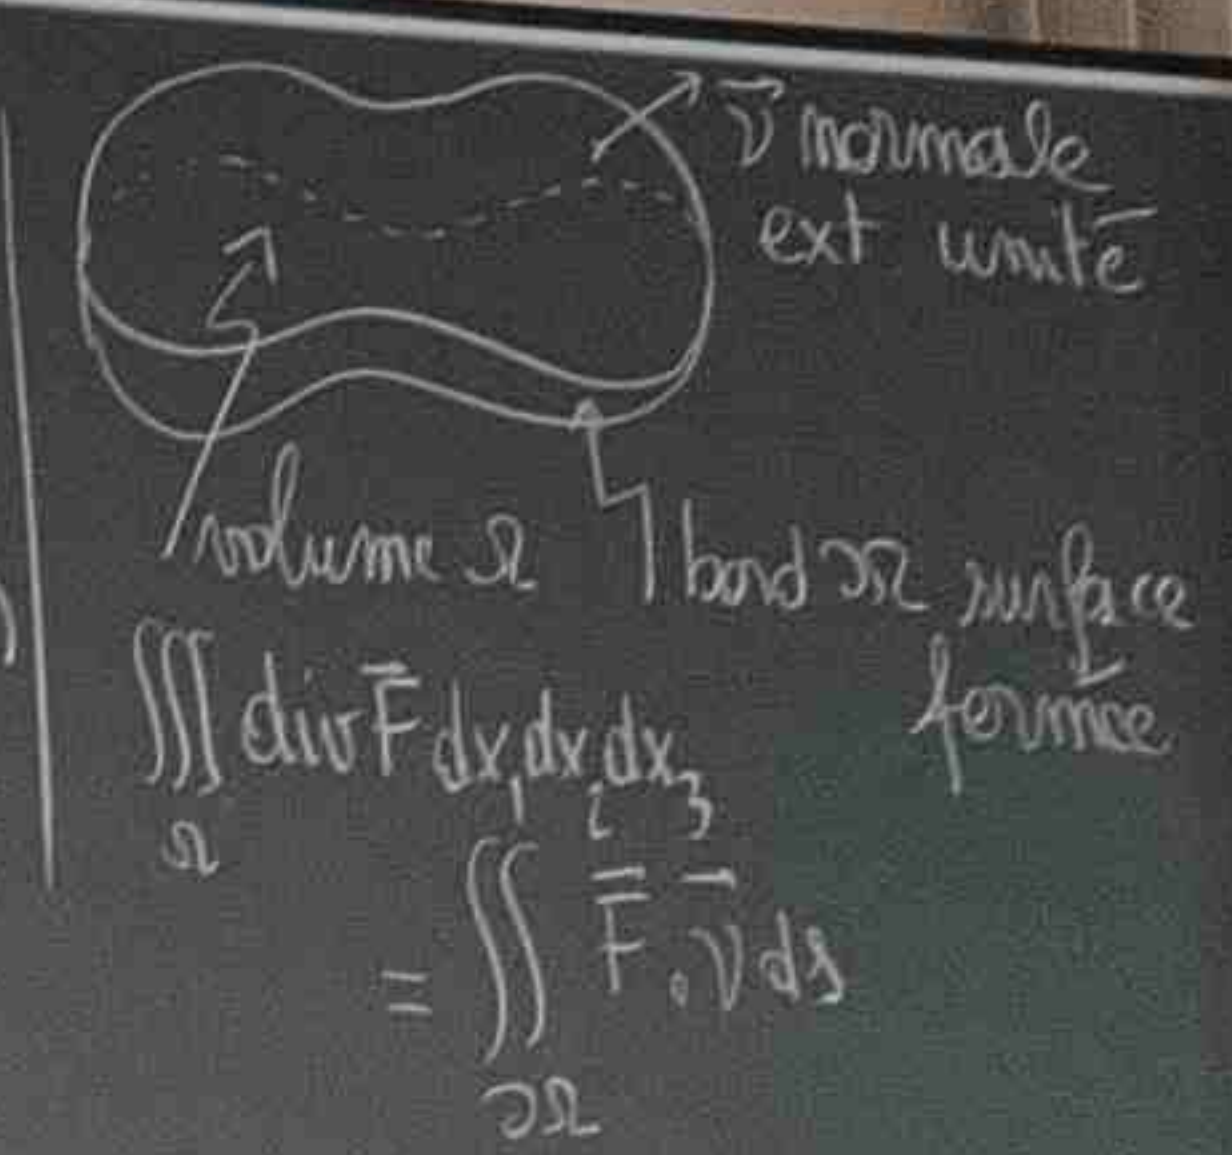 ν⃗ normale
ext unité
volume Ω
bord ∂Ω surface
fermée
∭ div F⃗ dx₁dx₂dx₃
Ω
= ∬ F⃗ . ν⃗ ds
∂Ω